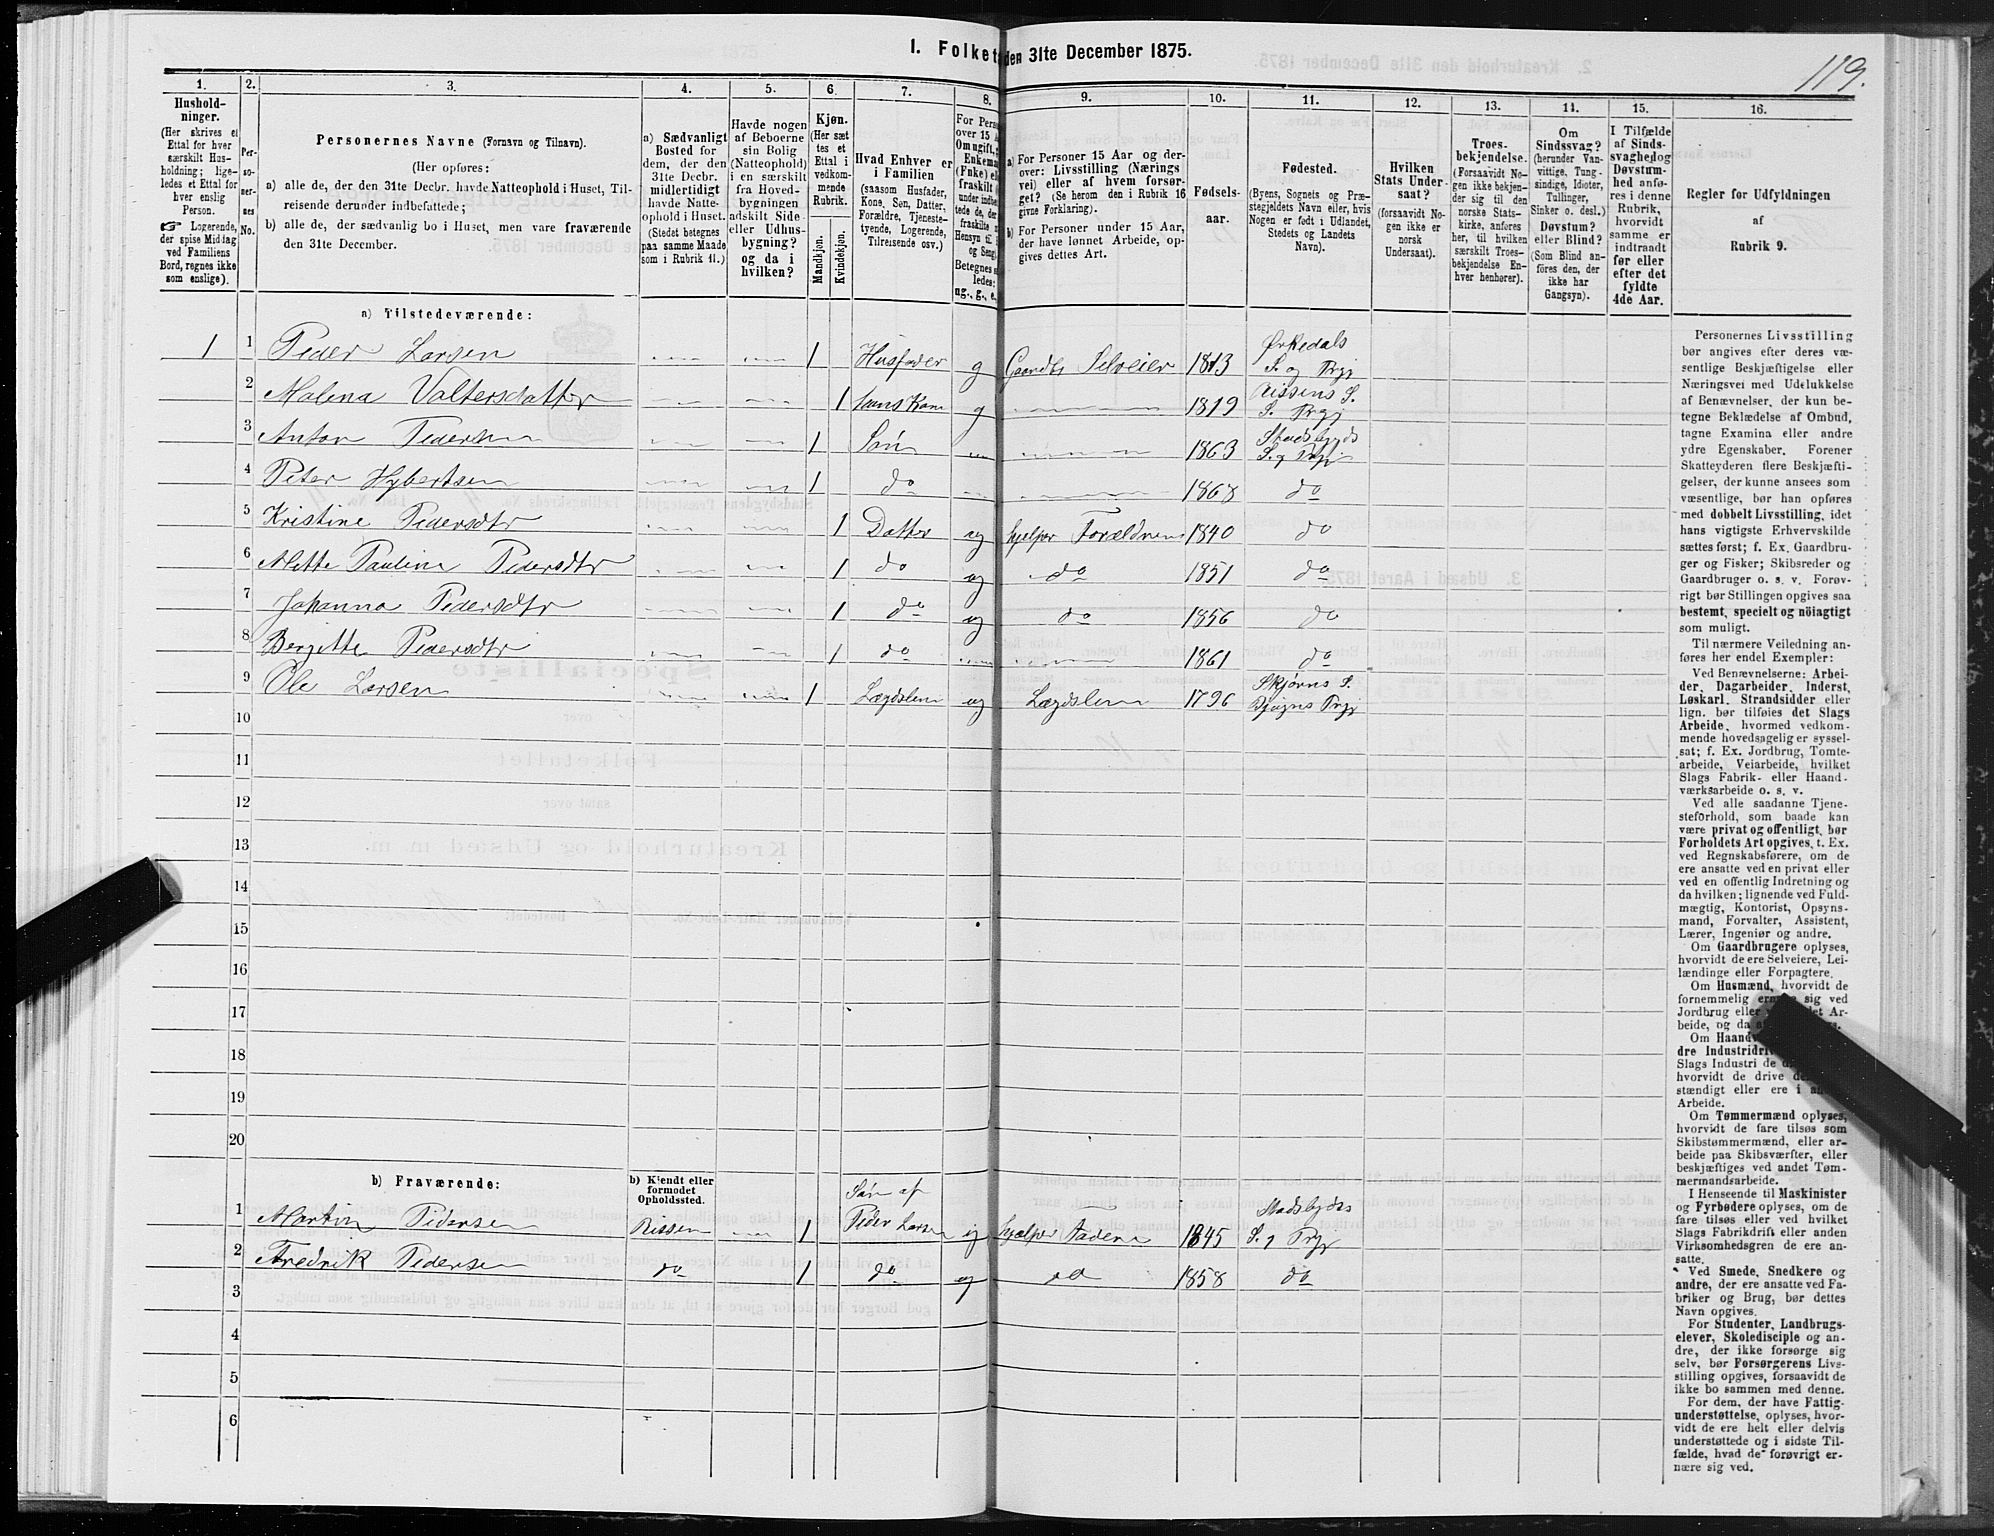 119.
I. Folket den 31te December 1875.
1. 2. 3. 4. 5. 6. 7. 8. 9. 10. 11. 12. 13. 14. 15. 16.
Hushold-
ninger.
(Her skrives et
Ettal for hver
særskilt Hus-
holdning; lige-
ledes et Ettal for
hver enslig
Person.
☞ Logerende,
der spise Middag
ved Familiens
Bord, regnes ikke
som enslige).
Per-
so-
ner-
nes
No.
Personernes Navne (Fornavn og Tilnavn).
(Her opføres:
a) alle de, der den 31te Decbr. havde Natteophold i Huset, Til-
reisende derunder indbefattede;
b) alle de, der sædvanlig bo i Huset, men vare fraværende
den 31te December.
a) Sædvanligt
Bosted for
dem, der den
31te Decbr.
midlertidigt
havde Natte-
ophold i Huset.
(Stedet betegnes
paa samme Maade
som i Rubrik 11.)
Havde nogen
af Beboerne
sin Bolig
(Natteophold)
i en særskilt
fra Hoved-
bygningen
adskilt Side-
eller Udhus-
bygning?
og da i
hvilken?
Kjøn.
(Her sæt-
tes et
Ettal i
vedkom-
mende
Rubrik.
Mandkjøn.
Kvindekjøn.
Hvad Enhver er
i Familien
(saasom Husfader,
Kone, Søn, Datter,
Forældre, Tjeneste-
tyende, Logerende,
Tilreisende osv.)
For Perso
over 15 A
Om ugift,
Enkema
(Enke) el
fraskilt
under indbe
tede de, de
fraskilte
Hensyn til
og Seng)
Betegnes s
ledes:
ug., g., e.,
a) For Personer 15 Aar og der-
over: Livsstilling (Nærings-
vei) eller af hvem forsør-
get? (Se herom den i Rubrik 16
givne Forklaring).
b) For Personer under 15 Aar,
der have lønnet Arbeide, op-
gives dettes Art.
Fødsels-
aar.
Fødested.
(Byens, Sognets og Præ-
stegjeldets Navn eller, hvis
Nogen er født i Udlandet,
Stedets og Landets
Navn).
Hvilken
Stats Under-
saat?
(forsaavidt No-
gen ikke er
norsk
Undersaat).
Troes-
bekjendelse.
(Forsaavidt No-
gen ikke bekjen-
der sig til den
norske Stats-
kirke, anføres
her, til hvilken
særskilt Troes-
bekjendelse En-
hver henhører).
Om
Sindssvag?
(herunder Van-
vittige, Tung-
sindige, Idioter,
Tullinger,
Sinker o. desl.)
Døvstum?
eller Blind?
(Som Blind an-
føres den, der
ikke har
Gangsyn).
I Tilfælde
af Sinds-
svaghed og
Døvstum-
hed anfø-
res i denne
Rubrik,
hvorvidt
samme er
indtraadt
før eller
efter det
fyldte
4de Aar.
Regler for Udfyldningen
af
Rubrik 9.
a) Tilstedeværende:
1 1 Peder Larsen 1 Husfader g Gaardbr Selveier 1813 Ørkedals S. og Prgj
2 Malena Voltersdatter 1 hans Kone g 1819 Rissens S. S. Prgj
3 Anton Pedersen 1 Søn 1863 Stadsbyds S. g Prgj
4 Peter Hybertsen 1 do 1868 do
5 Kristine Pedersdtr 1 Datter ug hjelper Forældrene 1840 do
6 Mette Pauline Pedersdtr 1 do ug do 1851 do
7 Johanna Pedersdtr 1 do ug do 1856 do
8 Bergitte Pedersdtr 1 do 1861 do
9 Ole Larsen 1 Lægdslem ug Lægdslem 1796 Skjørns S. Prgj
10
11
12
13
14
15
16
17
18
19
20
b) Fraværende:
b) Kjendt eller
formodet
Opholdssted.
1 Martin Pedersen Rissen 1 Søn af Peder Larsen ug hjælper Faderen 1845 Stadsbyds S. g Prgj
2 Fredrik Pedersen do 1 do ug do 1858 do
3
4
5
6
Personernes Livsstilling
bør angives efter deres væ-
sentlige Beskjæftigelse eller
Næringsvei med Udelukkelse
af Benævnelser, der kun be-
tegne Beklædelse af Ombud,
tagne Examina eller andre
ydre Egenskaber. Forener
Skatteyderen flere Beskjæfti-
gelser, der kunne ansees som
væsentlige, bør han opføres
med dobbelt Livsstilling, idet
hans vigtigste Erhvervskilde
sættes først; f. Ex. Gaardbru-
ger og Fisker; Skibsreder og
Gaardbruger o. s. v. Forøv-
rigt bør Stillingen opgives saa
bestemt, specielt og nöiagtigt
som muligt.
Til nærmere Veiledning an-
føres her endel Exempler:
Ved Benævnelserne: Arbei-
der, Dagarbeider, Inderst,
Løskarl, Strandsidder eller
lign. bør tilføies det Slags
Arbeide, hvormed vedkom-
mende hovedsagelig er syssel-
sat; f. Ex. Jordbrug, Tomte-
arbeide, Veiarbeide, hvilket
Slags Fabrik- eller Haand-
værksarbeide o. s. v.
Ved alle saadanne Tjene-
steforhold, som baade kan
være privat og offentligt, bør
Forholdets Art opgives, t. Ex.
ved Regnskabsførere, om de
ere ansatte ved en privat eller
ved en offentlig Indretning og
da hvilken; lignende ved Fuld-
mægtig, Kontorist, Opsyns-
mand, Forvalter, Assistent,
Lærer, Ingeniør og andre.
Om Gaardbrugere oplyses,
hvorvidt de ere Selveiere, Lei-
lændinge eller Forpagtere.
Om Husmænd, hvorvidt de
fornemmelig er sig ved
Jordbrug eller et Ar-
beide, og da
Om Haand
dre Industridri
Slags Industri de
hvorvidt de drive de
stændigt eller ere i
Arbeide.
Om Tømmermænd oplyses,
hvorvidt de fare tilsøs som
Skibstømmermænd, eller ar-
beide paa Skibsværfter, eller
beskjæftiges ved andet Tøm-
mermandsarbeide.
I Henseende til Maskinister
og Fyrbødere oplyses, om de
fare tilsøs eller ved hvilket
Slags Fabrikdrift eller anden
Virksomhedsgren de ere an-
satte.
Ved Smede, Snedkere og
andre, der ere ansatte ved Fa-
briker og Brug, bør dettes
Navn opgives.
For Studenter, Landbrugs-
elever, Skoledisciple og an-
dre, der ikke forsørge sig
selv, bør Forsørgerens Livs-
stilling opgives, forsaavidt de
ikke bo sammen med denne.
For dem, der have Fattig-
understøttelse, oplyses, hvor-
vidt de ere helt eller delvis
understøttede og i sidste Til-
fælde, hvad de forøvrigt er-
nære sig ved.